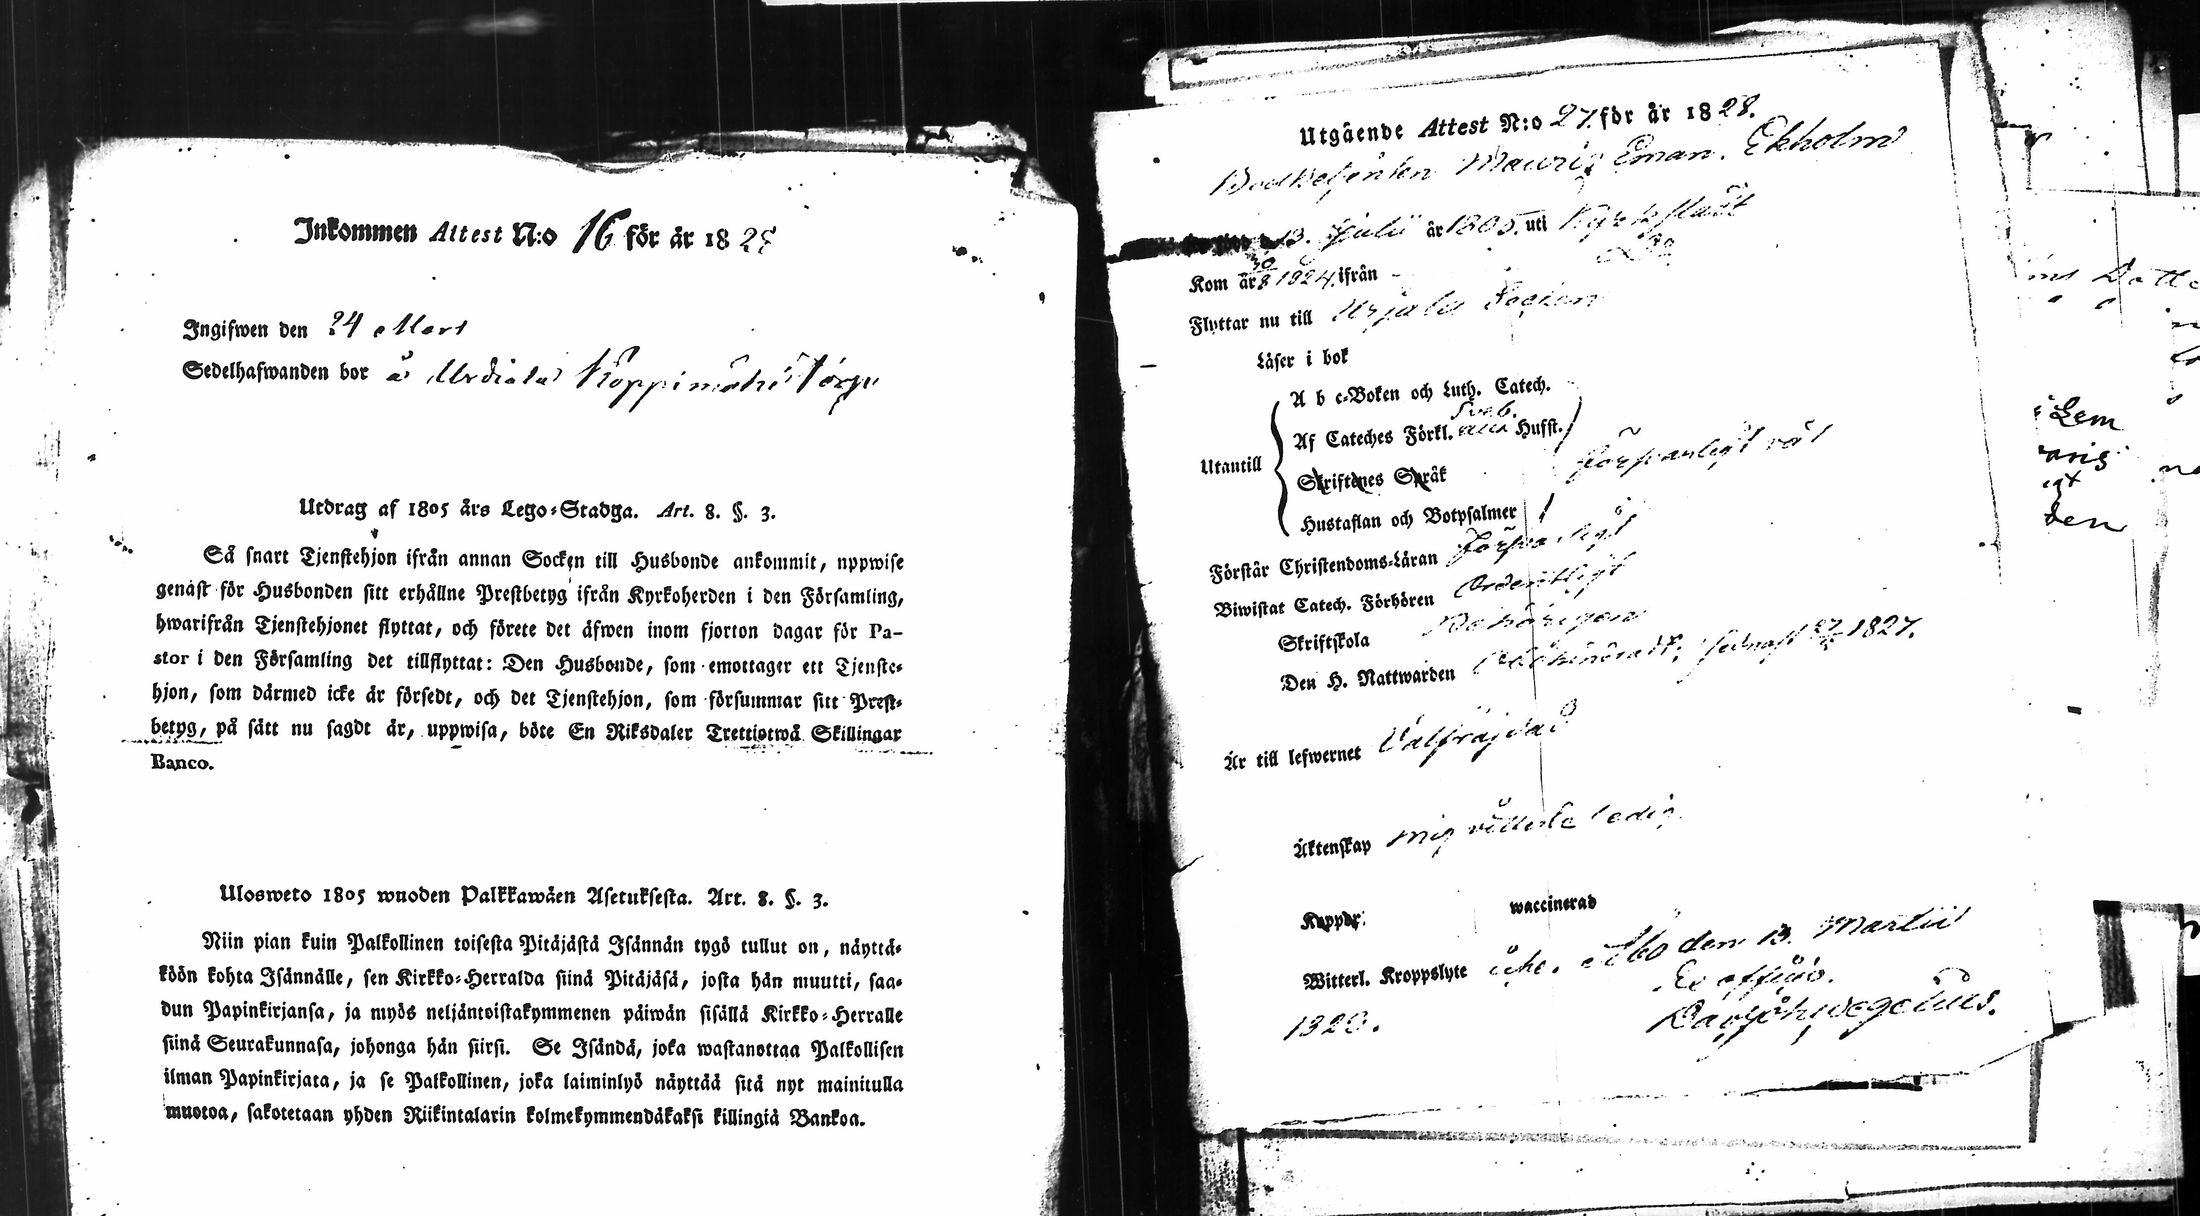 Inkommen Attest N:o 16 för år 1828
Ingifwen den 24 Mars
Sedelhafwanden bor å Urdiala
Utdrag af 1805 års Lego-Stadga. Art. 8. §. 3.
Så snart Tjenstehjon ifrån annan Socken till Husbonde ankommit, uppwise
genast för Husbonden sitt erhållne Prestbetyg ifrån Kyrkoherden i den Församling,
hwarifrån Tjenstehjonet flyttat, och förete det äfwen inom fjorton dagar för Pa-
stor i den Församling det tillflyttat: Den Husbonde, som emottager ett Tjenste-
hjon, som därmed icke är försedt, och det Tjenstehjon, som försummar sitt Prest-
betyg, på sätt nu sagdt är, uppwisa, böte En Riksdaler Trettiotwå Skillingar
Banco.
Ulosweto 1805 wuoden Palkkawäen Asetuksesta. Art. 8. §. 3.
Niin pian kuin Palkollinen toisesta Pitäjästä Isännän tygö tullut on, näyttä-
köön kohta Isännälle, sen Kirkko-Herralda siinä Pitäjäsä, josta hän muutti, saa-
dun Papinkirjansa, ja myös neljäntoistakymmenen päiwän sisällä Kirkko-Herralle
siinä Seurakunnasa, johonga hän siirsi. Se Isändä, joka wastanottaa Palkollisen
ilman Papinkirjata, ja se Palkollinen, joka laiminlyö näyttää sitä nyt mainitulla
muotoa, sakotetaan yhden Riikintalarin kolmekymmendäkaksi killingiä Bankoa.
Utgående Attest N:o 27. för år 1828.
Bodbetjenten Mauritz Eman. Ekholm
13. Julii år 1805. uti Kyrkslätt
Kom år 1824 ifrån
Flyttar nu till Urjala Socken
Läser i bok
A b c-Boken och Luth. Catech.
Af Cateches Förkl. Sveb. Hufst.
Utantill
Skriftenes Språk
försvarligt väl
Hustaflan och Botpsalmer
Förstår Christendoms-Läran försvarligt
Biwistat Catech. Förhören Ordentligt
Skriftskola Behörigen
Den H. Nattwarden sednast 1827.
Är till lefwernet Välfräjdad
Äktenskap mig vitterl. ledig
Koppor waccinerad
Witterl. Kroppslyte Åbo den 13. Martii
1828. Ex officio.